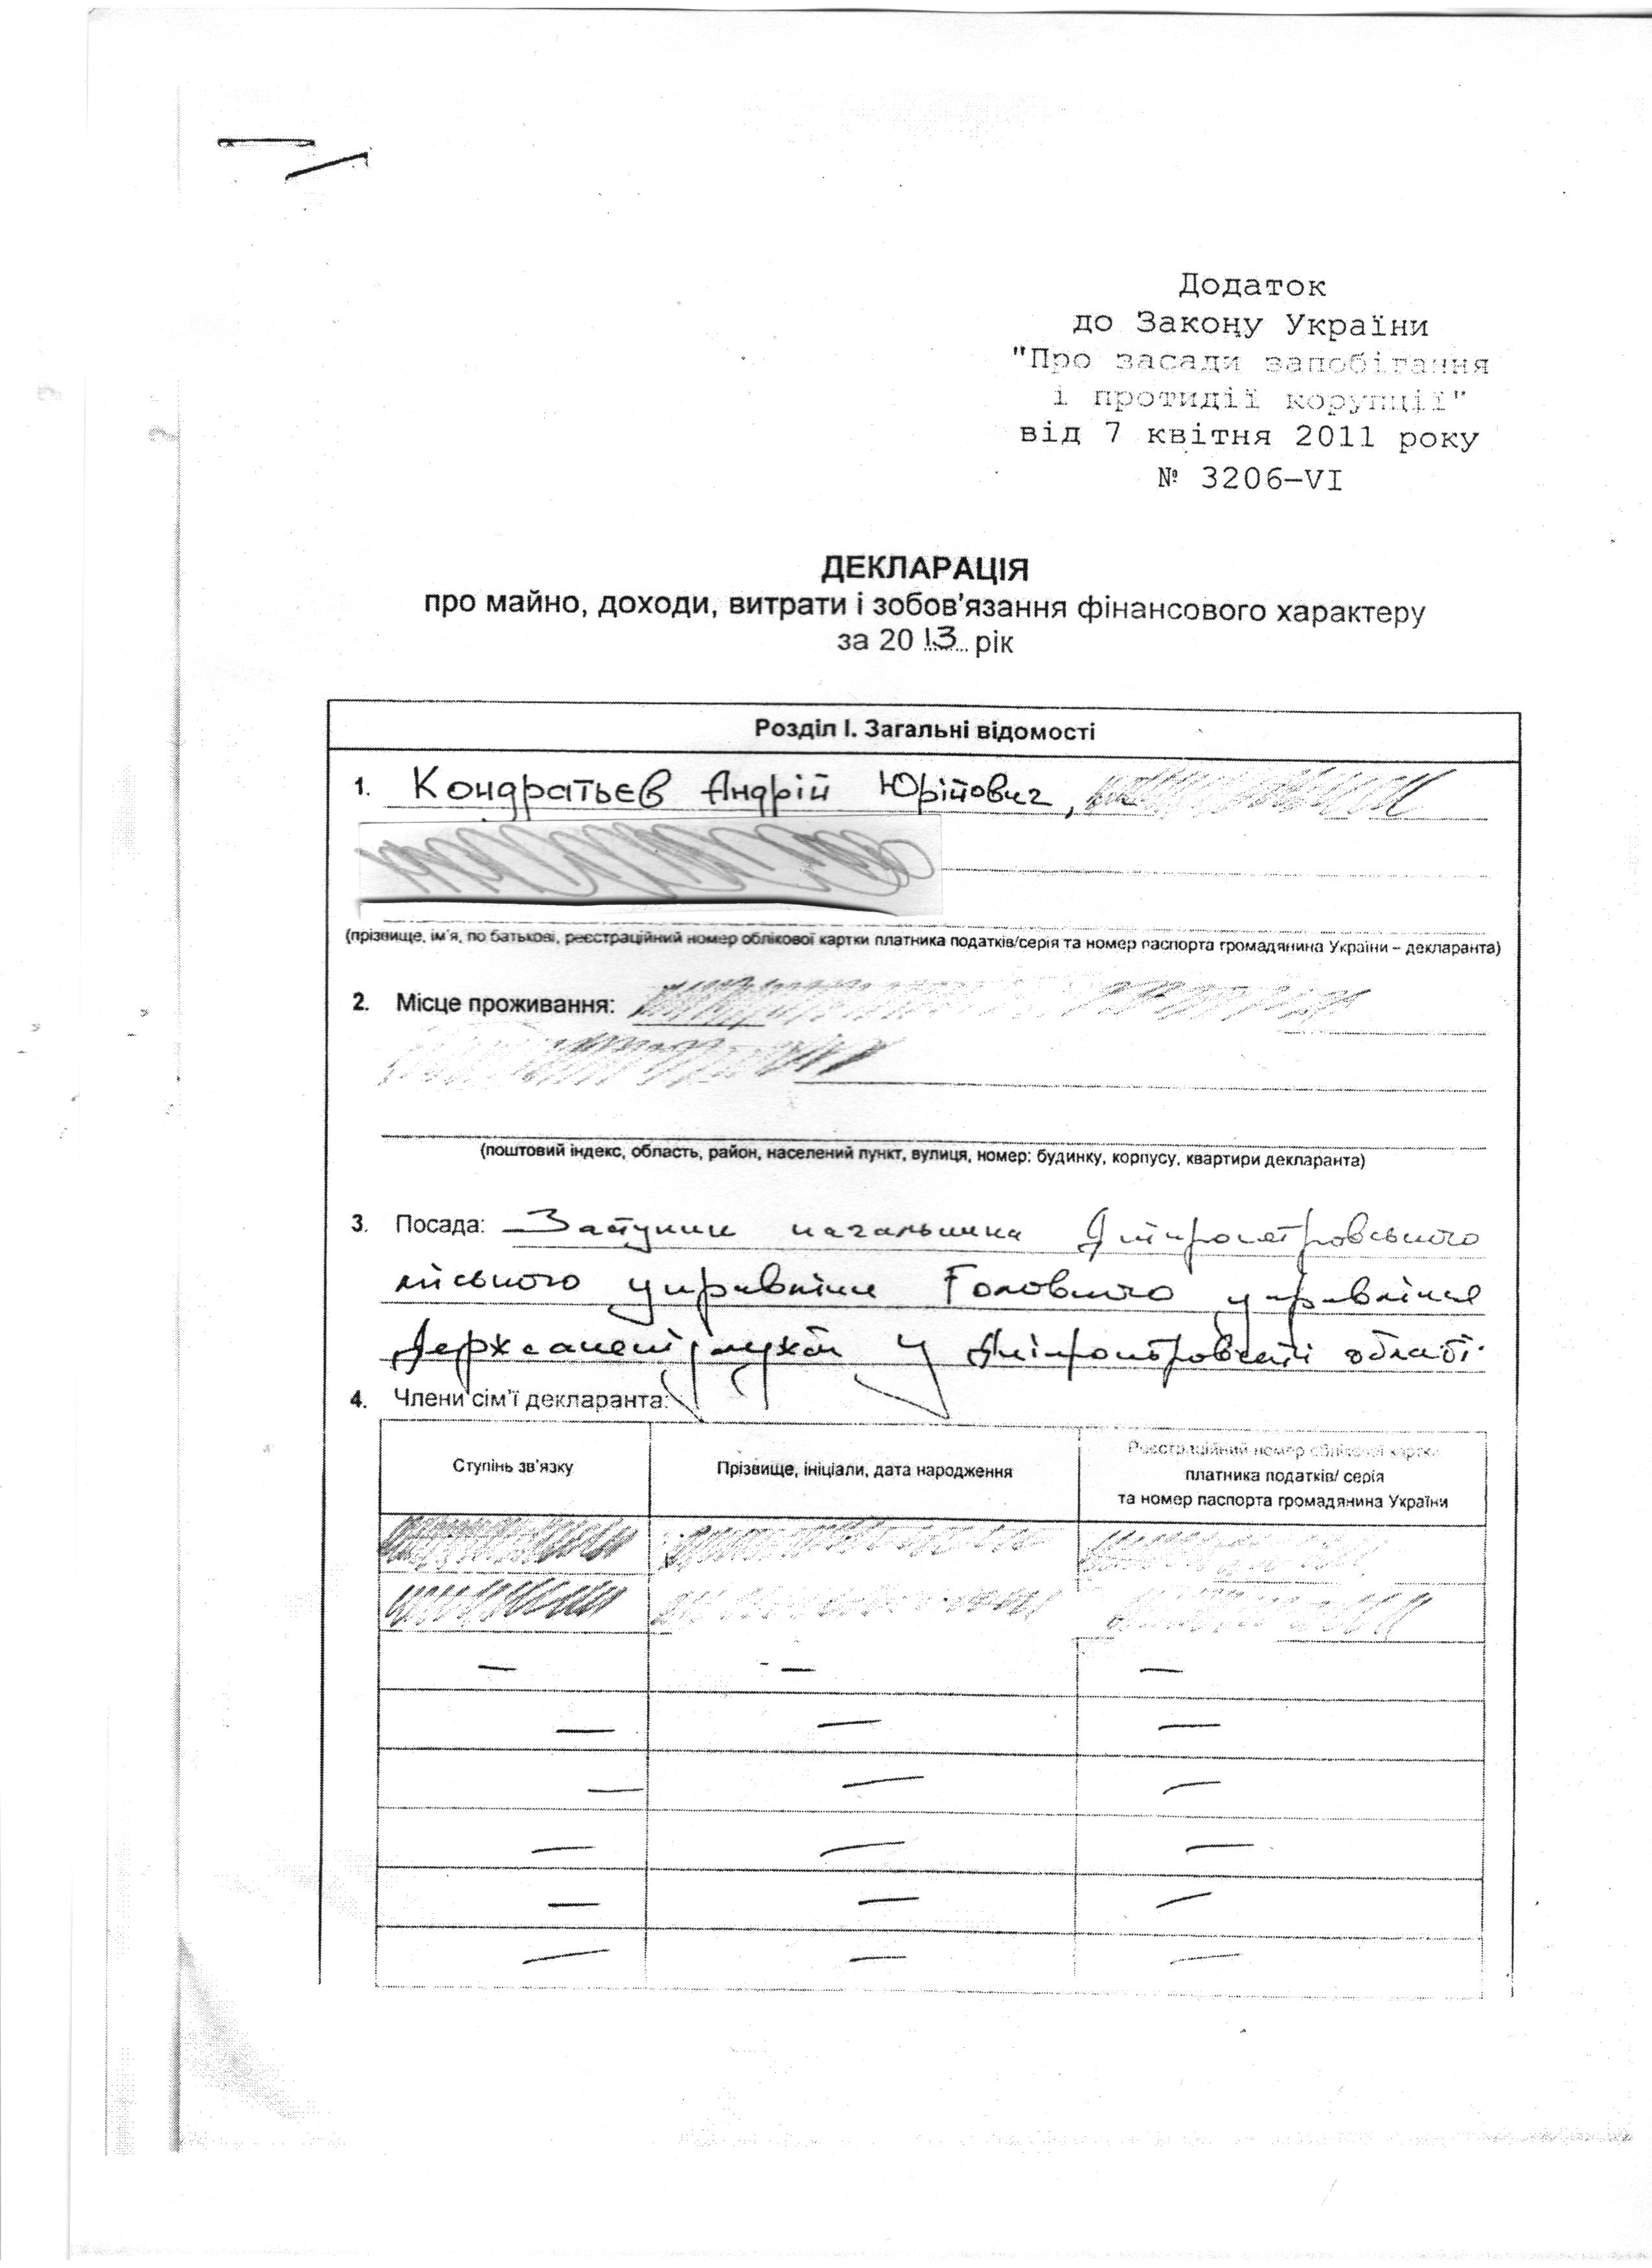 Додаток
до Закону України
"Про засади запобігання
і протидії корупції"
від 7 квітня 2011 року
№ 3206–VI
ДЕКЛАРАЦІЯ
про майно, доходи, витрати і зобов'язання фінансового характеру
за 2013 рік
Розділ І. Загальні відомості
1. Кондратьєв Андрій Юрійович,
(прізвище, ім'я, по батькові, реєстраційний номер облікової картки платника податків/серія та номер паспорта громадянина України – декларанта)
2. Місце проживання:
(поштовий індекс, область, район, населений пункт, вулиця, номер: будинку, корпусу, квартири декларанта)
3. Посада: Заступник начальника Дніпропетровського
міського управління Головного управління
Держсанепідслужби у Дніпропетровській області
4. Члени сім'ї декларанта:
Ступінь зв'язку
Прізвище, ініціали, дата народження
Реєстраційний номер облікової картки
платника податків/ серія
та номер паспорта громадянина України